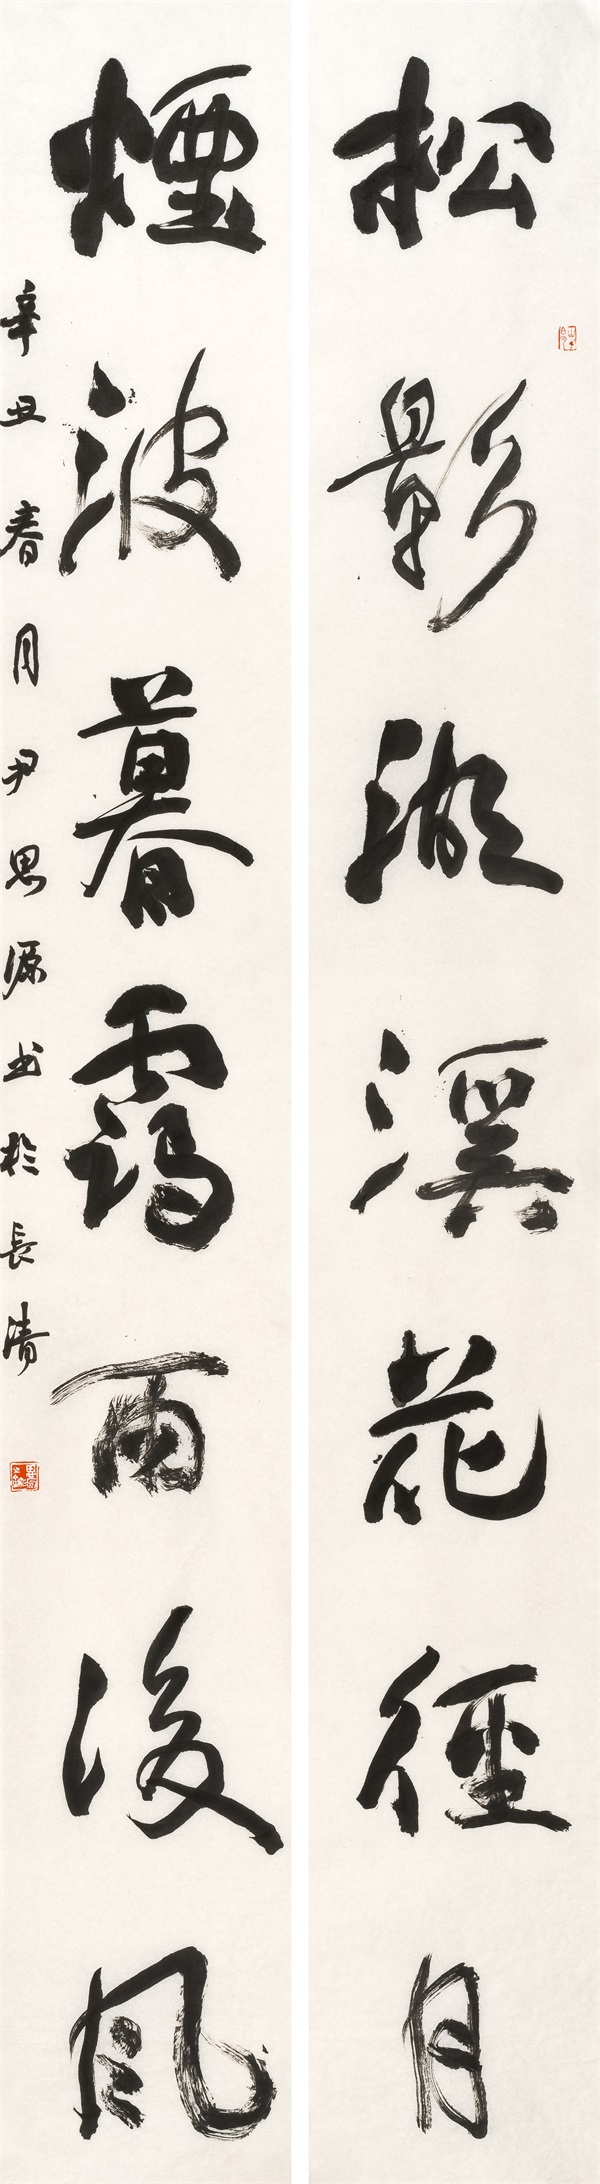 松影溪花徑月
煙波暮靄雨後風
辛丑春月尹思源书於長清